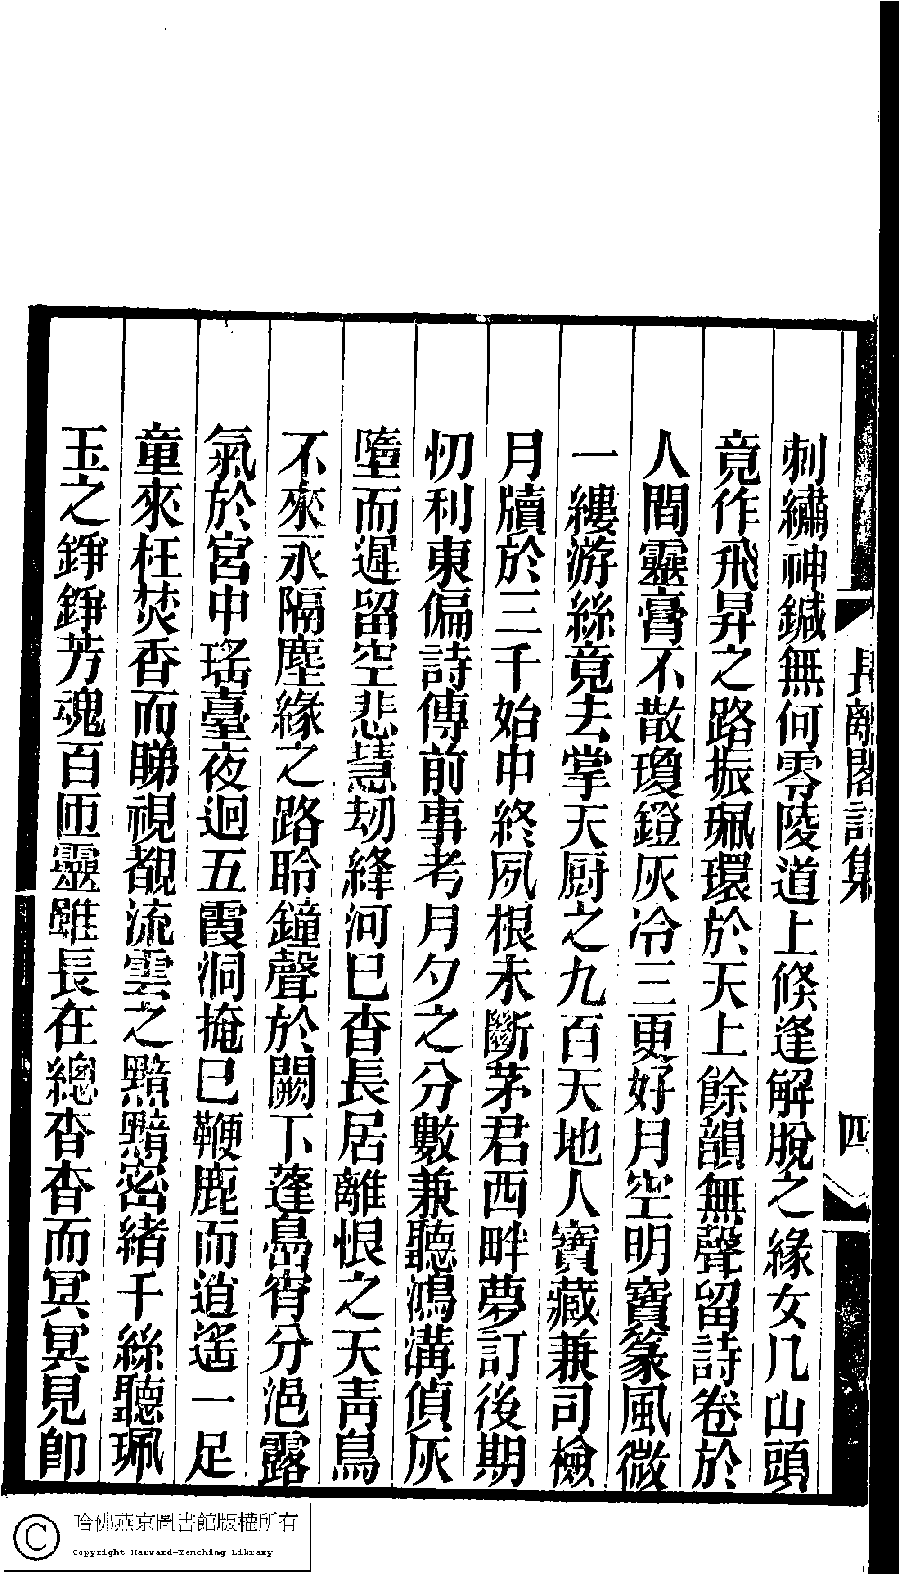 長離閣詩集
四
刺繡神鍼無何零陵道上倐逢解脫之緣女几山頭
竟作飛昇之路振珮環於天上餘韻無聲留詩卷於
人間靈膏不散瓊鐙灰冷三更好月空明寶篆風微
一縷游絲竟去掌天厨之九百天地人寶藏兼司檢
月牘於三千始中終夙根未斷茅君西畔夢訂後期
忉利東偏詩傳前事考月夕之分數兼聽鴻溝偵灰
墮而遲留空悲慧劫絳河已杳長居離恨之天青鳥
不來永隔塵緣之路聆鐘聲於闕下蓬島宵分浥露
氣於宮中瑤臺夜迥五霞洞掩已鞭鹿而逍遙一足
童來枉焚香而睇視覩流雲之黯黯密緒千絲聽珮
玉之錚錚芳魂百匝靈雖長在總杳杳而冥冥見卽
哈佛燕京圖書館版權所有
Copyright Harvard-Yenching Library